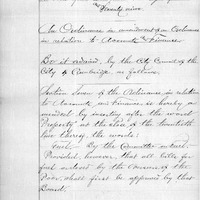 Twenty nine
An Ordinance in amendment of an Ordinance
in relation to Accounts and Finance
Be it ordained, by the City Council of the
City of Cambridge, as follows.
Section Seven of the Ordinance in relation
to Accounts and Finance is hereby a-
mended by inserting after the word
"Property" at the close of the twentieth
line thereof, the words:
By the Committee
Provided, however, that all bills for
fuel ordered by the Overseers of the
Poor shall first be approved by that
Board.